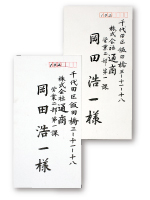 千代田区飯田橋三-十一-十八
株式会社通商
営業二部第一課
岡田浩一様
千代田区飯田橋三-十一-十八
株式会社通商
営業二部第一課
岡田浩一様